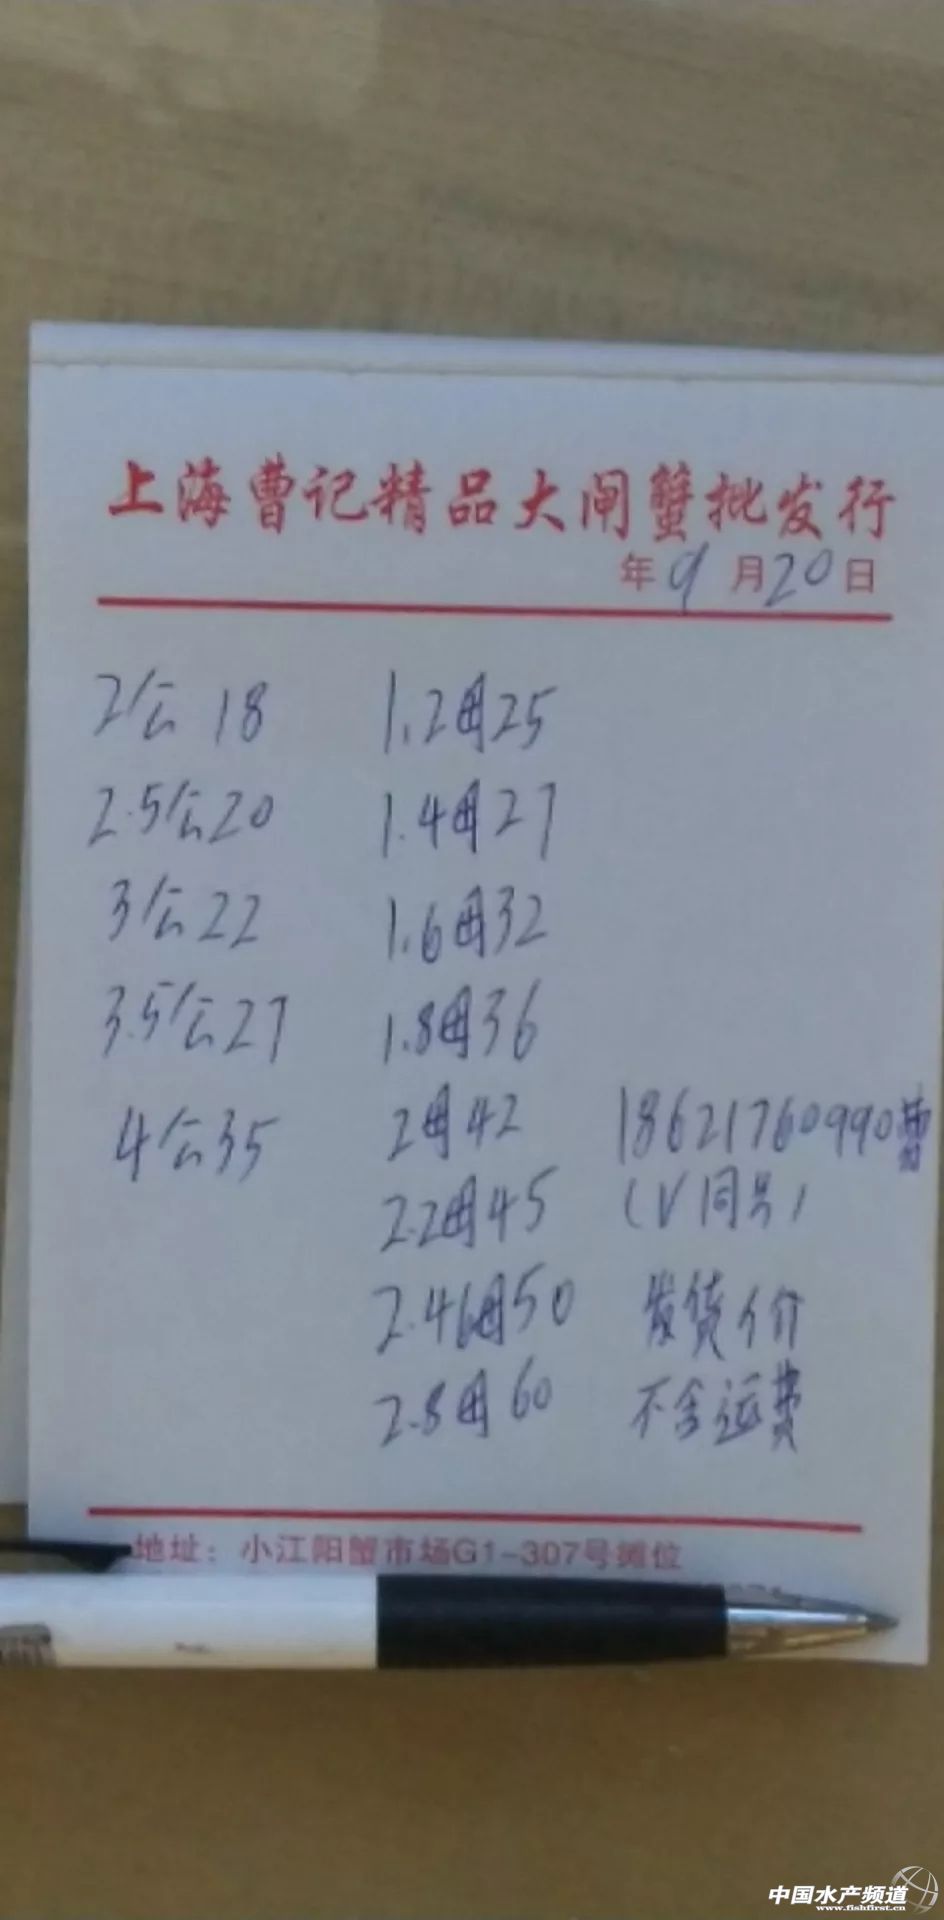 上海曹记精品大闸蟹批发行
年9月20日
2公 18 1.2母25
2.5公20 1.4母27
3公22 1.6母32
3.5公27 1.8母36
4公35 2母42 18621760990曹
2.2母45 (V同号)
2.46母50 发货价
2.8母60 不含运费
地址：小江阳蟹市场G1-307号摊位
中国水产频道
www.fishfirst.cn